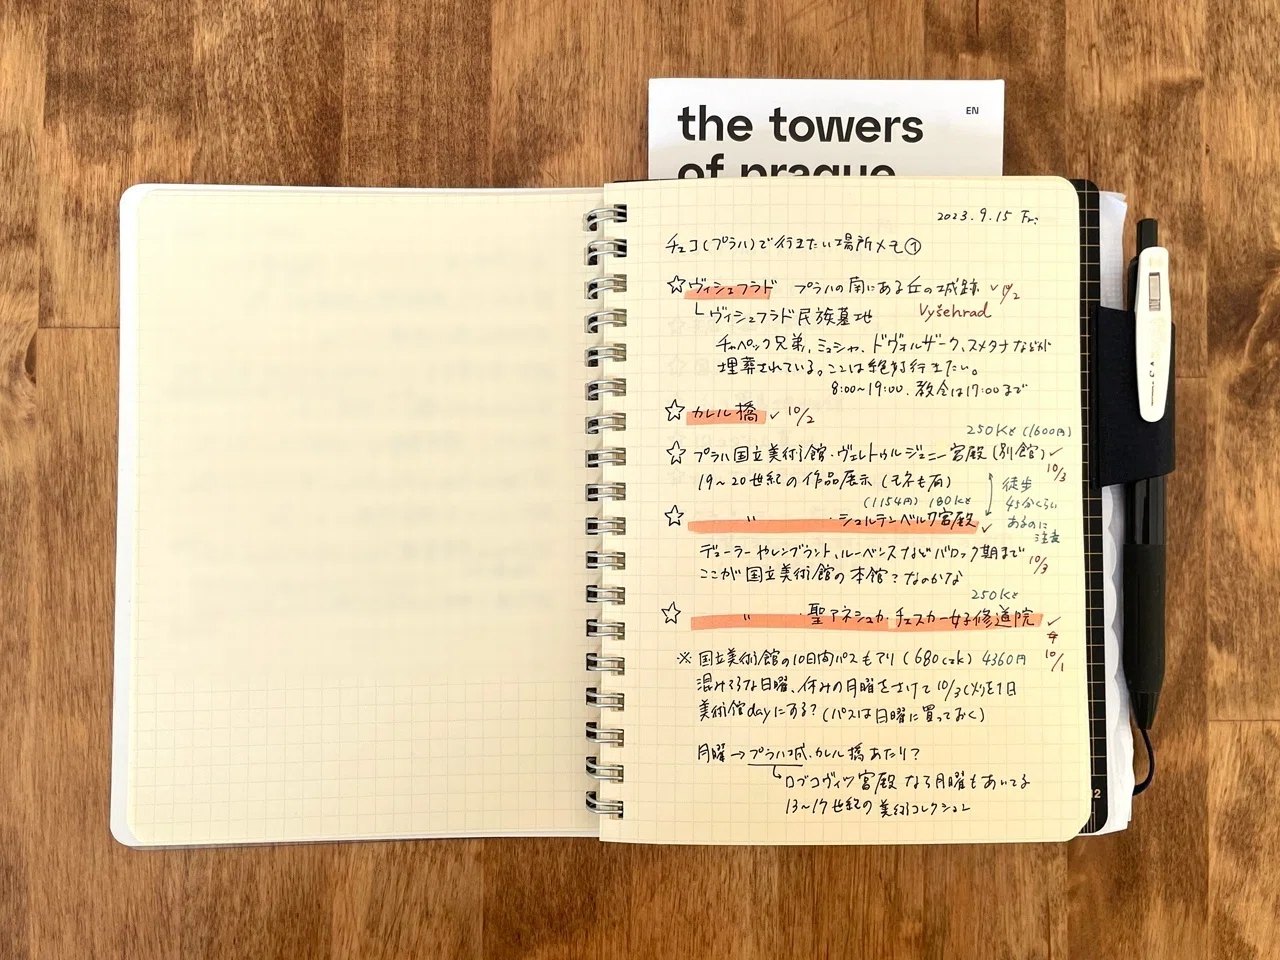 the towers
EN
of prague
2023.9.15 Fri.
チェコ(プラハ)で行きたい場所メモ①
☆ヴィシェフラド プラハの南にある丘の城跡 ✓ 10/2
└ヴィシェフラド民族墓地 Vyšehrad
チャペック兄弟、ミュシャ、ドヴォルザーク、スメタナなどが
埋葬されている。ここは絶対行きたい。
8:00~19:00. 教会は17:00まで
☆カレル橋 ✓ 10/2
250Kč (1600円)
☆プラハ国立美術館・ヴェレトゥルジュニー宮殿(別館) ✓
10/3
19~20世紀の作品展示(モネも有)
徒歩
45分くらい
あるのに
注意
(1154円) 180Kč
☆ 〃 ・シュルテンベルク宮殿 ✓
デューラーやレンブラント、ルーベンスなどバロック期まで
10/3
ここが国立美術館の本館?なのかな
250Kč
☆ 〃 ・聖アネシュカ・チェスカー女子修道院 ✓
10/1
※国立美術館の10日間パスもアリ(680czk) 4360円
混みそうな日曜、休みの月曜をさけて10/3(火)を1日
美術館dayにする?(パスは日曜に買っておく)
月曜→プラハ城、カレル橋あたり?
ロブコヴィツ宮殿なら月曜もあいてる
13~17世紀の美術コレクション
12